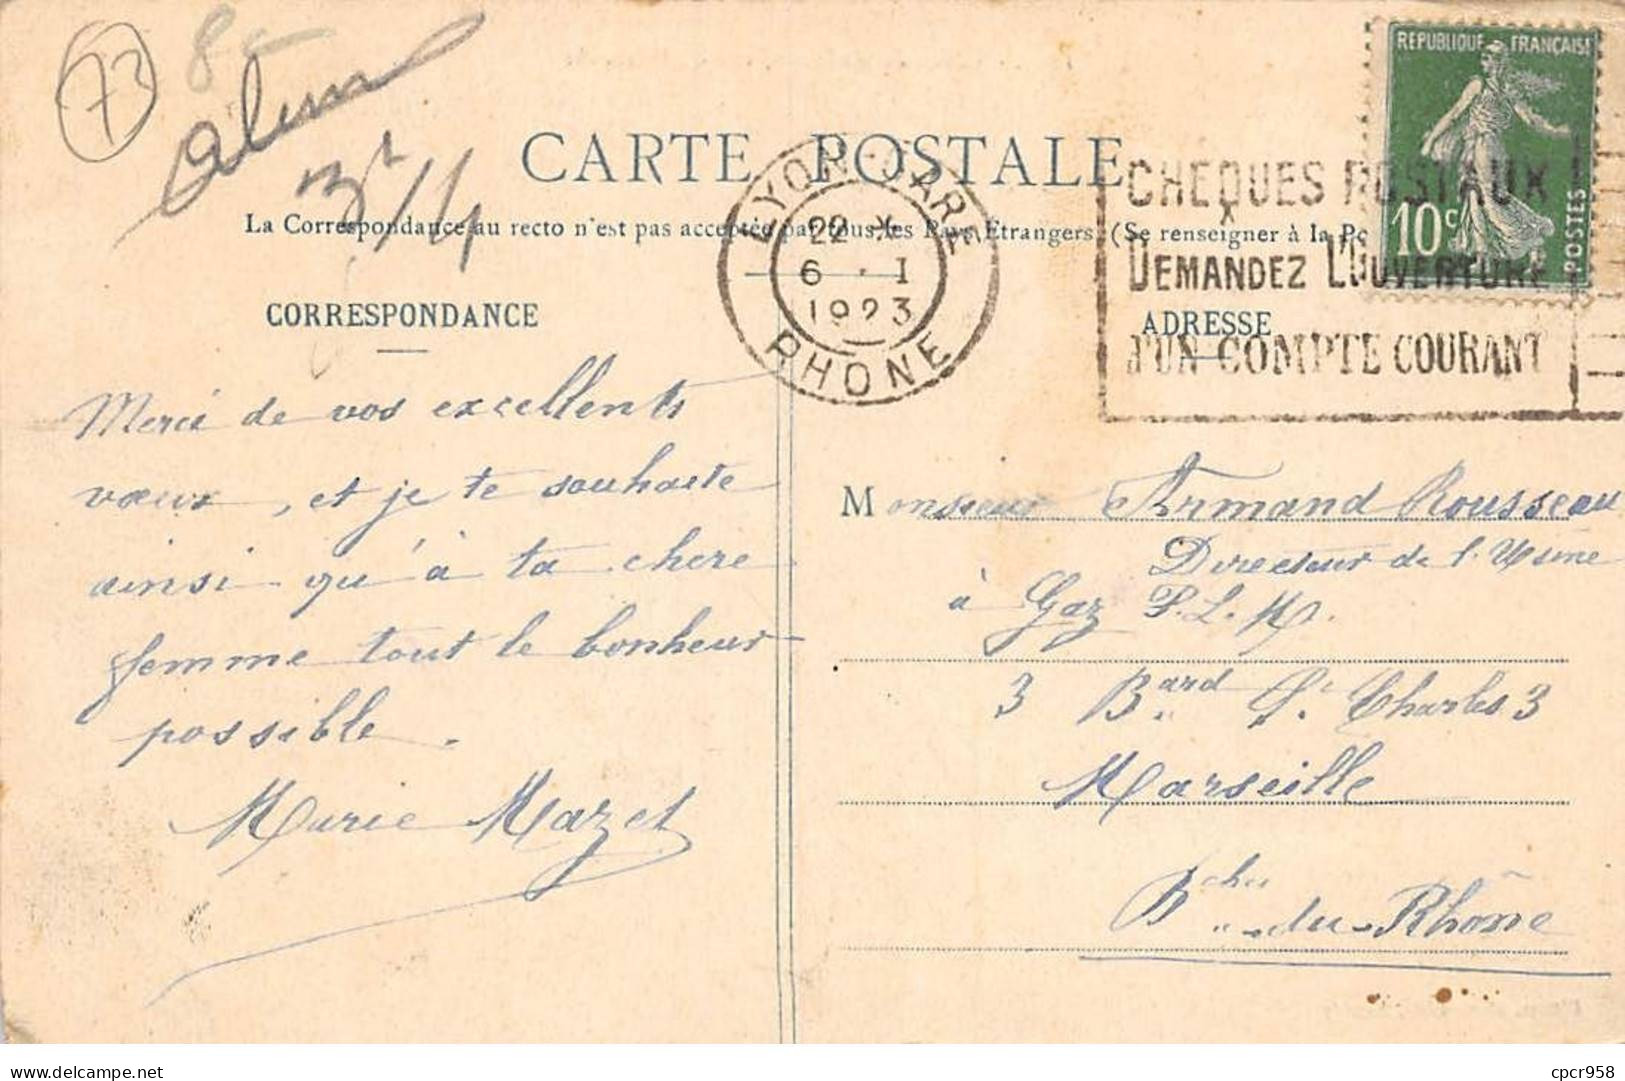 73
8
3
14
CARTE POSTALE
La Correspondance au recto n'est pas acceptée par tous les Pays Etrangers (Se renseigner à la Po
CORRESPONDANCE
ADRESSE
REPUBLIQUE FRANÇAISE
10c
POSTES
LYON-GARE
22 *
6 . I
1923
RHONE
CHEQUES POSTAUX
DEMANDEZ L'OUVERTURE
d'UN COMPTE COURANT
Merci de vos excellents
vœux, et je te souhaite
ainsi qu'à ta chere
femme tout le bonheur
possible.
Marie Mazet
Monsieur Armand Rousseau
Directeur de l'Usine
à Gaz P.L.M.
3 Bard St Charles 3
Marseille
Bches-du-Rhône
cpcr958